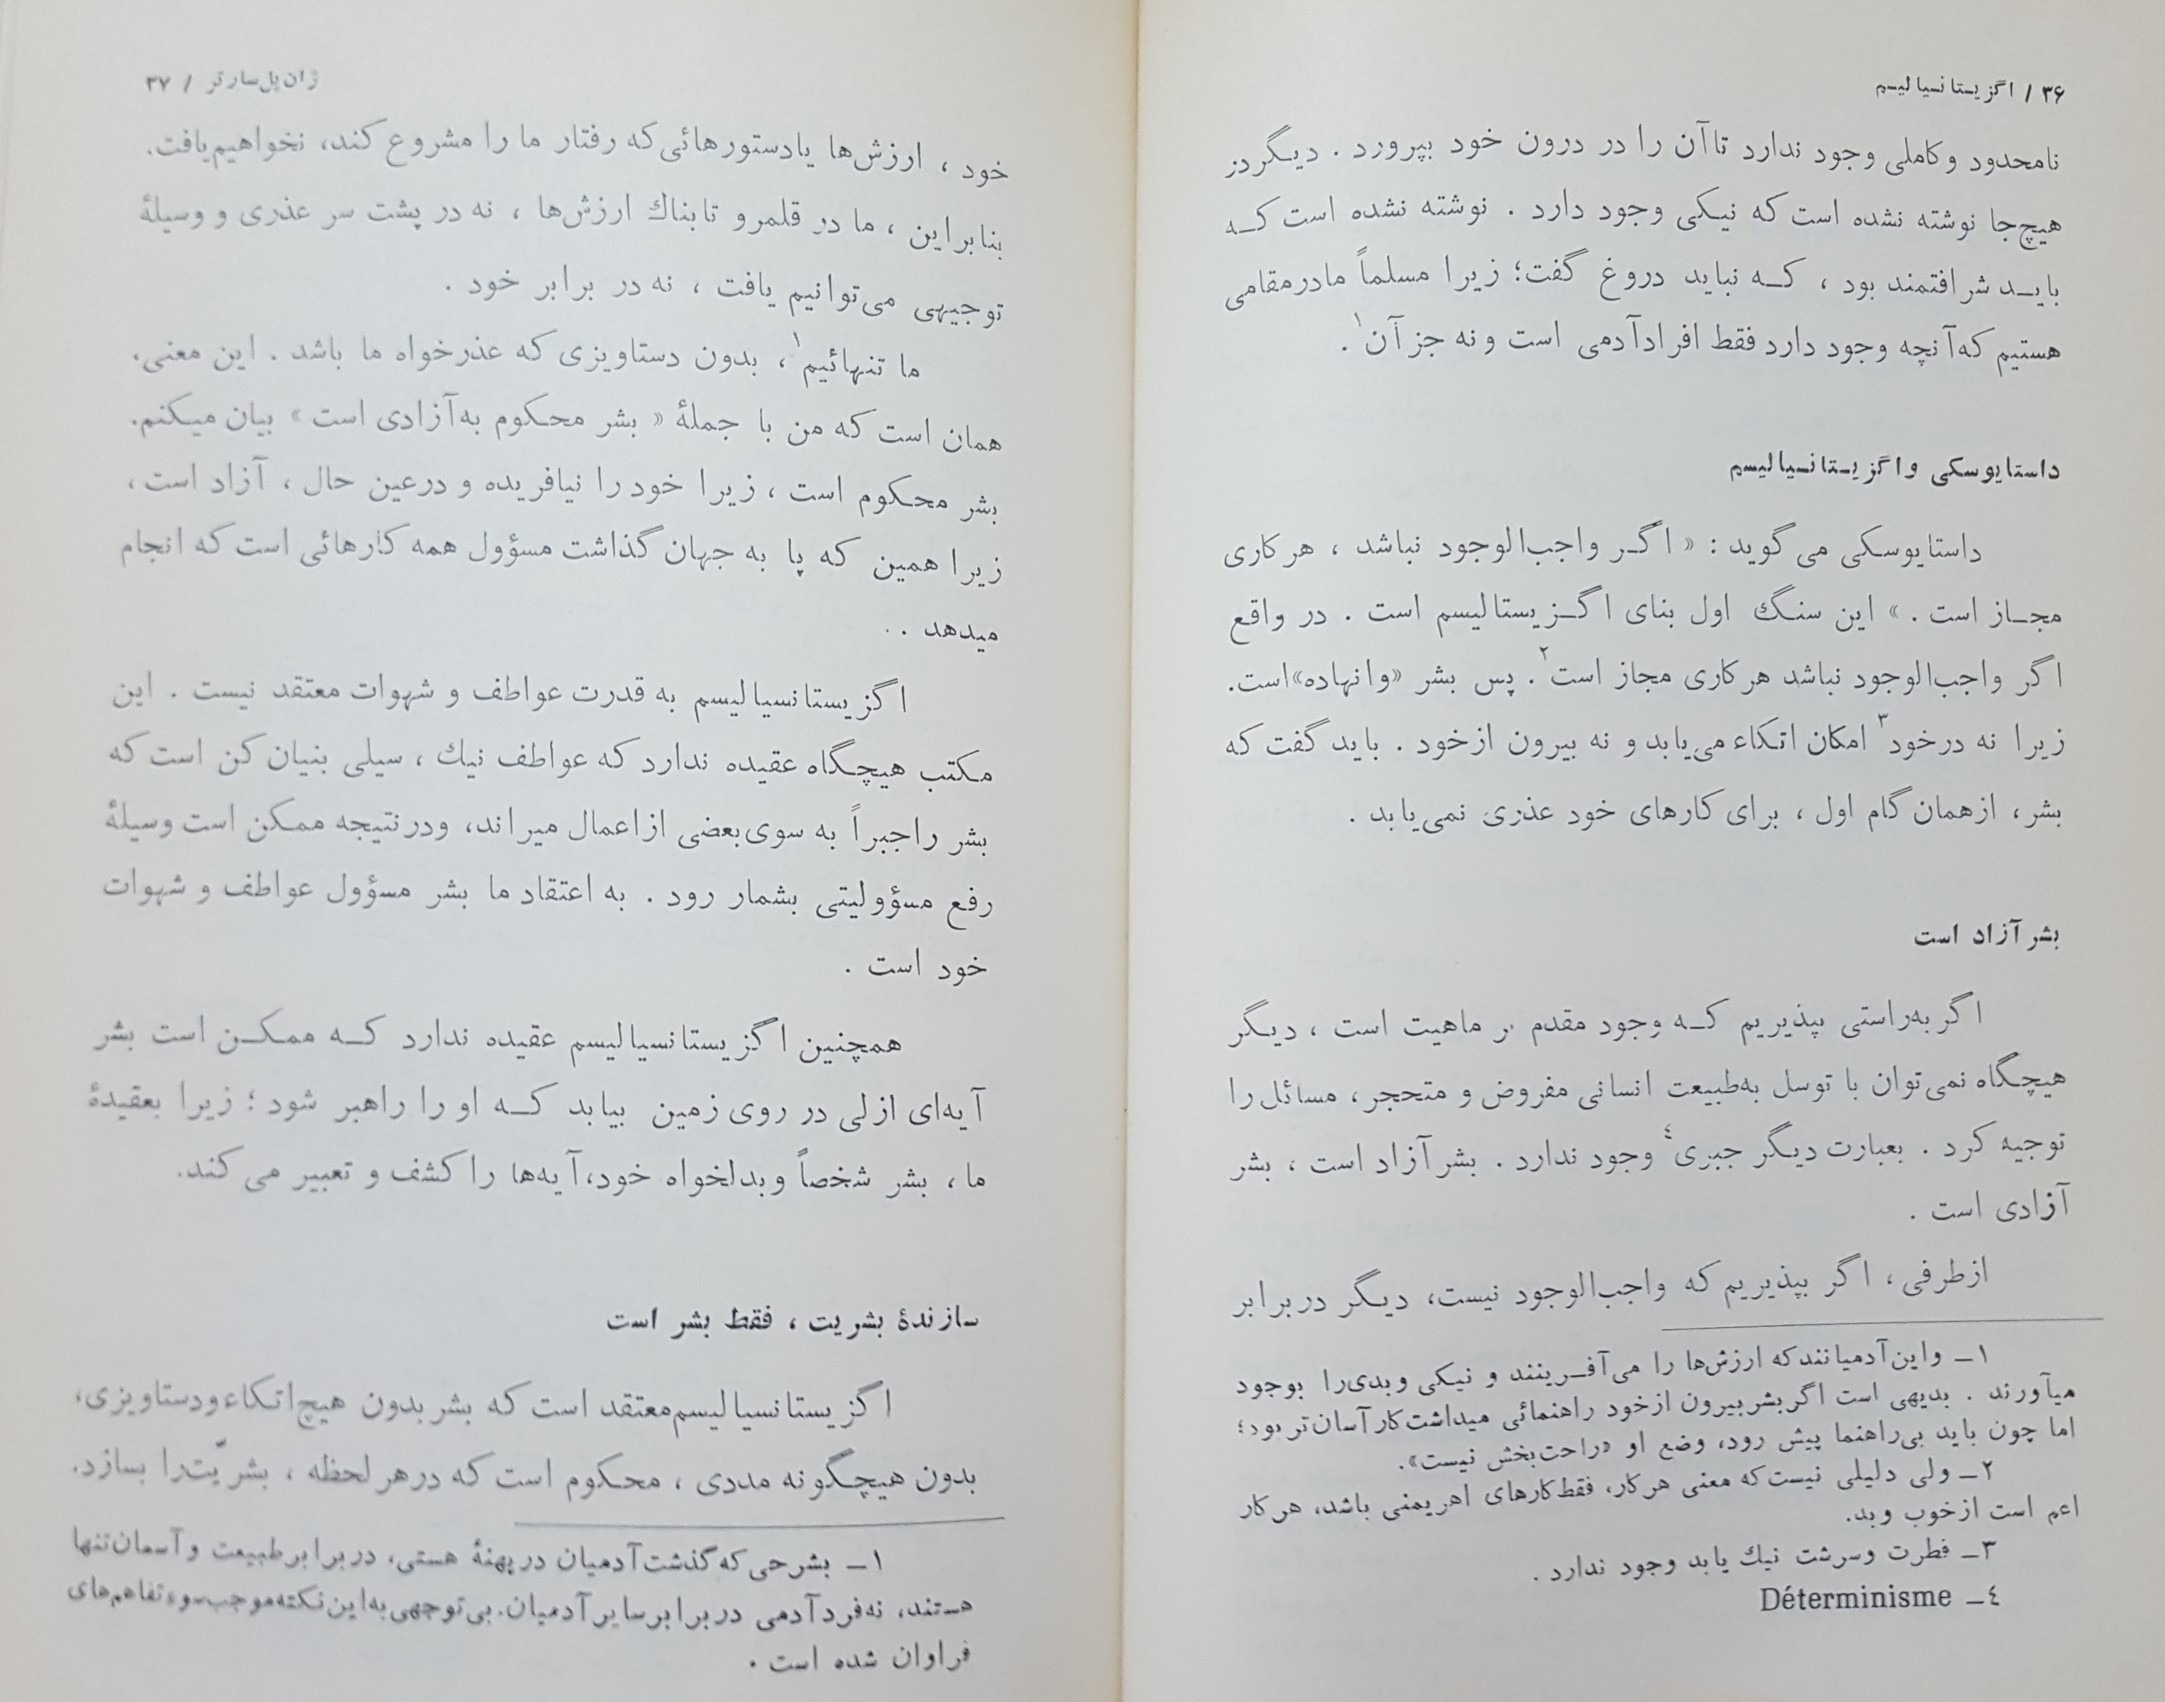 ۳۶ / اگزیستانسیالیسم
نامحدود و کاملی وجود ندارد تا آن را در درون خود بپرورد . دیگر در
هیچ‌جا نوشته نشده است که نیکی وجود دارد . نوشته نشده است که
باید شرافتمند بود ، که نباید دروغ گفت؛ زیرا مسلماً ما در مقامی
هستیم که آنچه وجود دارد فقط افراد آدمی است و نه جز آن۱ .
داستایوسکی و اگزیستانسیالیسم
داستایوسکی می‌گوید : « اگر واجب‌الوجود نباشد ، هر کاری
مجاز است . » این سنگ اول بنای اگزیستالیسم است . در واقع
اگر واجب‌الوجود نباشد هر کاری مجاز است۲ . پس بشر «وانهاده» است.
زیرا نه در خود۳ امکان اتکاء می‌یابد و نه بیرون از خود . باید گفت که
بشر، از همان گام اول ، برای کارهای خود عذری نمی‌یابد .
بشر آزاد است
اگر به‌راستی بپذیریم که وجود مقدم بر ماهیت است ، دیگر
هیچگاه نمی‌توان با توسل به‌طبیعت انسانی مفروض و متحجر، مسائل را
توجیه کرد . بعبارت دیگر جبری۴ وجود ندارد . بشر آزاد است ، بشر
آزادی است .
از طرفی ، اگر بپذیریم که واجب‌الوجود نیست، دیگر در برابر
۱ــ و این آدمیانند که ارزش‌ها را می‌آفرینند و نیکی و بدی را بوجود
میآورند . بدیهی است اگر بشر بیرون از خود راهنمائی میداشت کار آسان‌تر بود؛
اما چون باید بی‌راهنما پیش رود، وضع او «راحت‌بخش نیست».
۲ــ ولی دلیلی نیست که معنی هر کار، فقط کارهای اهریمنی باشد، هر کار
اعم است از خوب و بد.
۳ــ فطرت و سرشت نیك یا بد وجود ندارد .
٤ــ Déterminisme
ژان پل سارتر / ۳۷
خود ، ارزش‌ها یا دستورهائی که رفتار ما را مشروع کند، نخواهیم یافت.
بنابراین ، ما در قلمرو تابناك ارزش‌ها ، نه در پشت سر عذری و وسیلهٔ
توجیهی می‌توانیم یافت ، نه در برابر خود .
ما تنهائیم۱ ، بدون دستاویزی که عذرخواه ما باشد . این معنی،
همان است که من با جملهٔ « بشر محکوم به آزادی است » بیان میکنم.
بشر محکوم است ، زیرا خود را نیافریده و در عین حال ، آزاد است ،
زیرا همین که پا به جهان گذاشت مسؤول همه کارهائی است که انجام
میدهد .
اگزیستانسیالیسم به قدرت عواطف و شهوات معتقد نیست . این
مکتب هیچگاه عقیده ندارد که عواطف نیك ، سیلی بنیان کن است که
بشر را جبراً به سوی بعضی از اعمال میراند، و در نتیجه ممکن است وسیلهٔ
رفع مسؤولیتی بشمار رود . به اعتقاد ما بشر مسؤول عواطف و شهوات
خود است .
همچنین اگزیستانسیالیسم عقیده ندارد که ممکن است بشر
آیه‌ای ازلی در روی زمین بیابد که او را راهبر شود ؛ زیرا بعقیدهٔ
ما ، بشر شخصاً و بدلخواه خود، آیه‌ها را کشف و تعبیر می‌کند.
سازندهٔ بشریت ، فقط بشر است
اگزیستانسیالیسم معتقد است که بشر بدون هیچ اتکاء و دستاویزی،
بدون هیچگونه مددی ، محکوم است که در هر لحظه ، بشریّت را بسازد.
۱ــ بشرحی که گذشت آدمیان در پهنهٔ هستی، در برابر طبیعت و آسمان تنها
هستند، نه فرد آدمی در برابر سایر آدمیان. بی‌توجهی به این نکته موجب سوءتفاهم‌های
فراوان شده است .